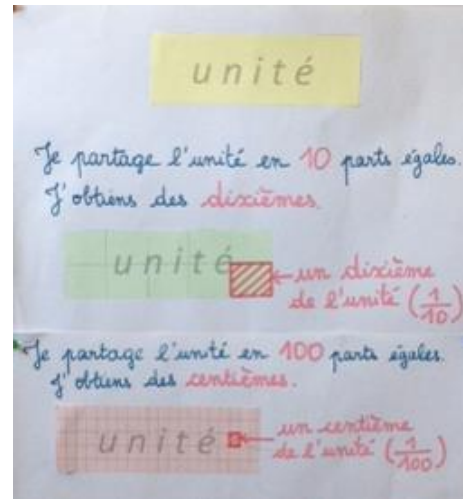 unité
Je partage l'unité en 10 parts égales.
J'obtiens des dixièmes.
unité
un dixième
de l'unité (1/10)
Je partage l'unité en 100 parts égales.
J'obtiens des centièmes.
unité
un centième
de l'unité (1/100)